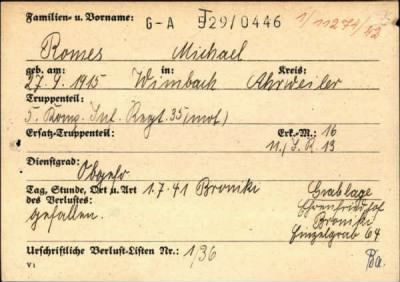 Familien- u. Vorname: G-A 529/0446 1/11274/52
Romes Michael
geb. am: in: Kreis:
27.9.1915 Wimbach Ahrweiler
Truppenteil:
5. Komp. Inf. Regt. 35 (mot)
Ersatz-Truppenteil: Erk.-M.: 16
11./J.R 13
Dienstgrad:
Obgefr
Tag, Stunde, Ort u. Art 1.7.41 Broniki Grablage
des Verlustes: Ehrenfriedhof
gefallen. Broniki
Einzelgrab 64
Urschriftliche Verlust-Listen Nr.: 1/36
V 1